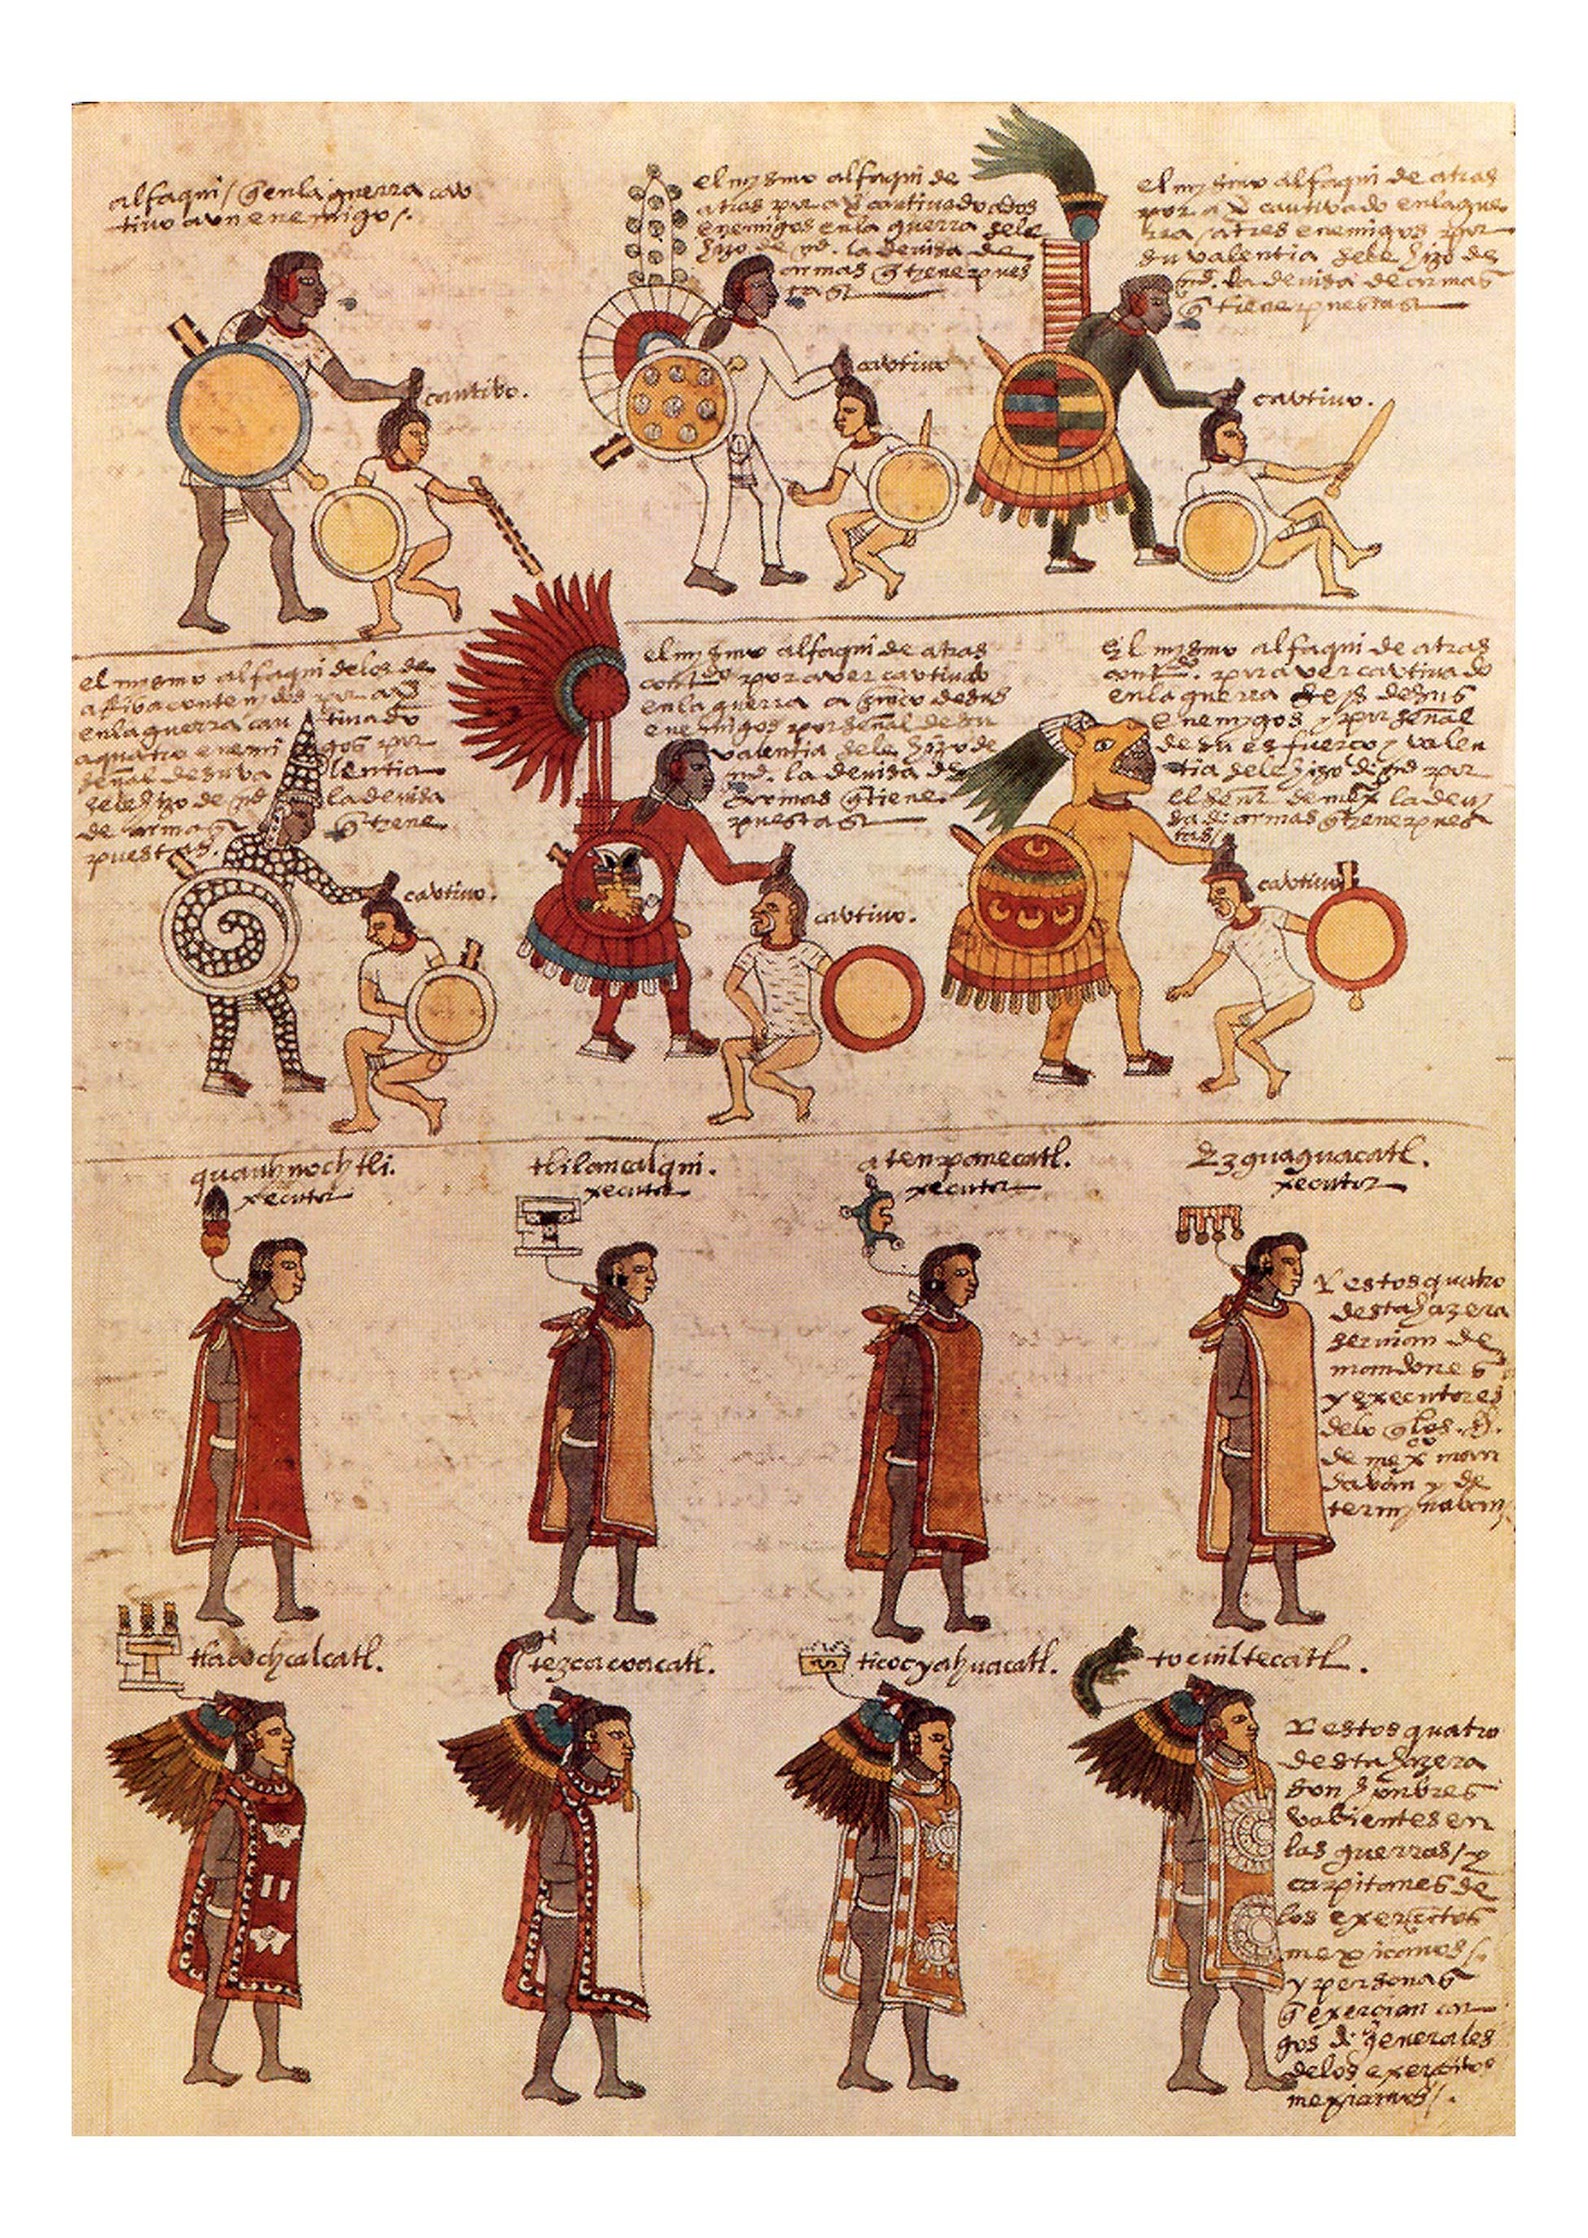 alfaqui / q̃ en la guerra cav
tivo a un enemigo /.
cautibo.
el mysmo alfaqui de
atras por aver cautivado a dos
enemigos en la guerra se le
hizo de md. la devisa de
armas q̃ tiene pues
tas
cautivo
el mysmo alfaqui de atras
por aver cautivado en la gue
rra / a tres enemigos por
su valentia se le hizo de
md. la devisa de armas
q̃ tiene puestas
cautivo.
el mysmo alfaqui de los de
atras contenydos por aver
en la guerra cau tivado
a quatro enemi gos por
señal de su va lentia
se le hizo de md la devisa
de armas q̃ tiene
puestas.
cautivo.
el mysmo alfaqui de atras
contdo por aver cautivado
en la guerra a cinco de sus
enemigos por señal de su
valentia se le hizo de
md. la devisa de
armas q̃ tiene
puestas
cautivo.
El mysmo alfaqui de atras
contdo. por aver cautivado
en la guerra seys de sus
enemygos y por señal
de su esfuerço y valen
tia se le hizo de md por
el señor de mexco la devi
sa de armas q̃ tiene pues
tas /
cautivo
quauhnochtli.
xecutor
tlilancalqui.
xecutor
atenpanecatl.
xecutor
Ezguaguacatl.
xecutor
Y estos quatro
desta hazera
servian de
mandones
y executores
de lo q̃ los .S.
de mexco man
davan y de
termynaban
tlacochcalcatl.
tezcacoacatl.
ticocyahuacatl.
tocuiltecatl.
Y estos quatro
desta hazera
son honbres
valientes en
las guerras / y
capitanes de
los exercitos
mexicanos /.
y personas
q̃ exercian car
gos de generales
de los exercitos
mexicanos /.